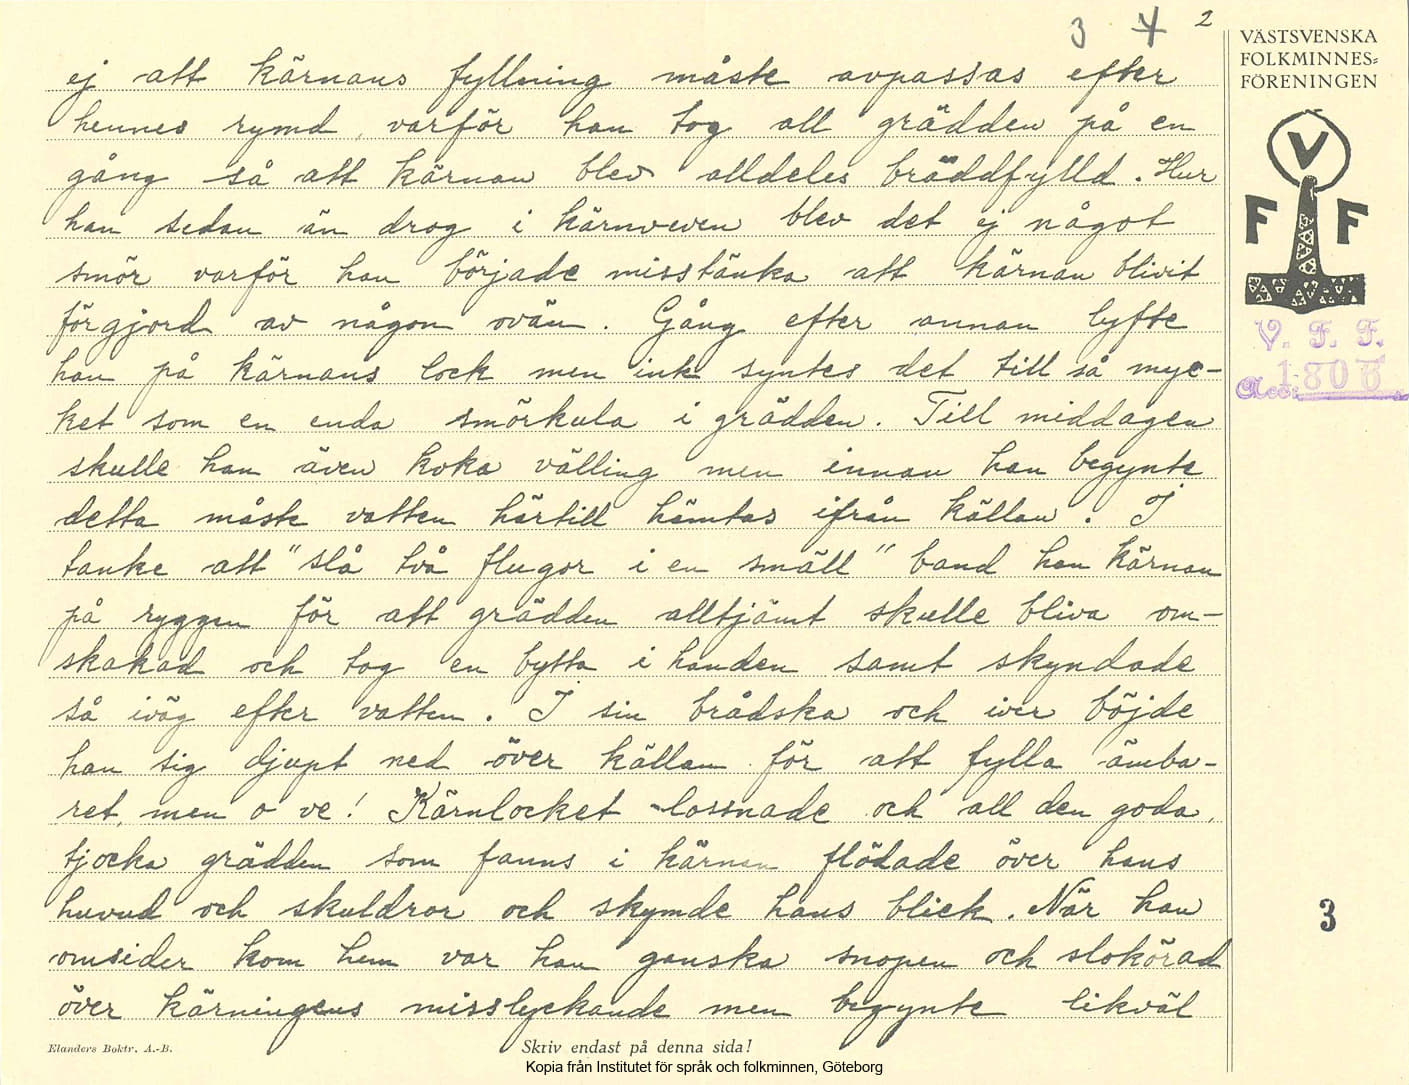 3 4 2
ej att kärnans fyllning måste avpassas efter
hennes rymd, varför han tog all grädden på en
gång så att kärnan blev alldeles bräddfylld. Hur
han sedan än drog i kärnveven blev det ej något
smör varför han började misstänka att kärnan blivit
förgjord av någon ovän. Gång efter annan lyfte
han på kärnans lock men inte syntes det till så myc-
ket som en enda smörkula i grädden. Till middagen
skulle han även koka välling men innan han begynte
detta måste vatten härtill hämtas ifrån källan. I
tanke att "slå två flugor i en smäll" band han kärnan
på ryggen för att grädden alltjämt skulle bliva om-
skakad och tog en bytta i handen samt skyndade
så iväg efter vatten. I sin brådska och iver böjde
han sig djupt ned över källan för att fylla ämba-
ret, men o ve! Kärnlocket lossnade och all den goda,
tjocka grädden som fanns i kärnan flödade över hans
huvud och skuldror och skymde hans blick. När han
omsider kom hem var han ganska snopen och slokörad
över kärningens misslyckande men begynte likväl
VÄSTSVENSKA
FOLKMINNES=
FÖRENINGEN
V
F F
V. F. F.
Acc: 1806
3
Elanders Boktr. A.-B.
Skriv endast på denna sida!
Kopia från Institutet för språk och folkminnen, Göteborg